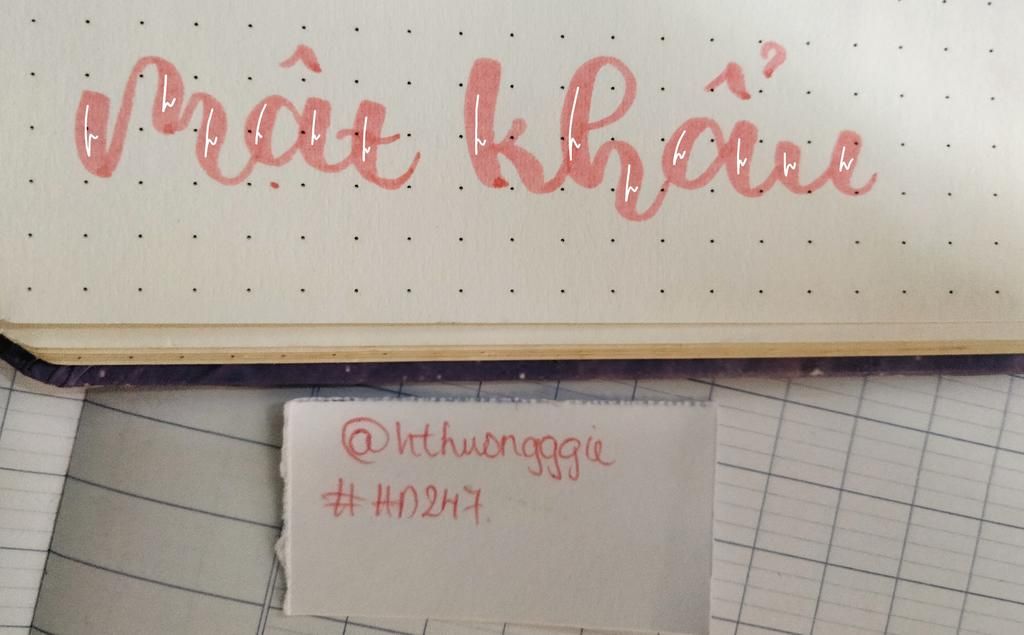 mật khẩu
@hthuongggie
# HD247.